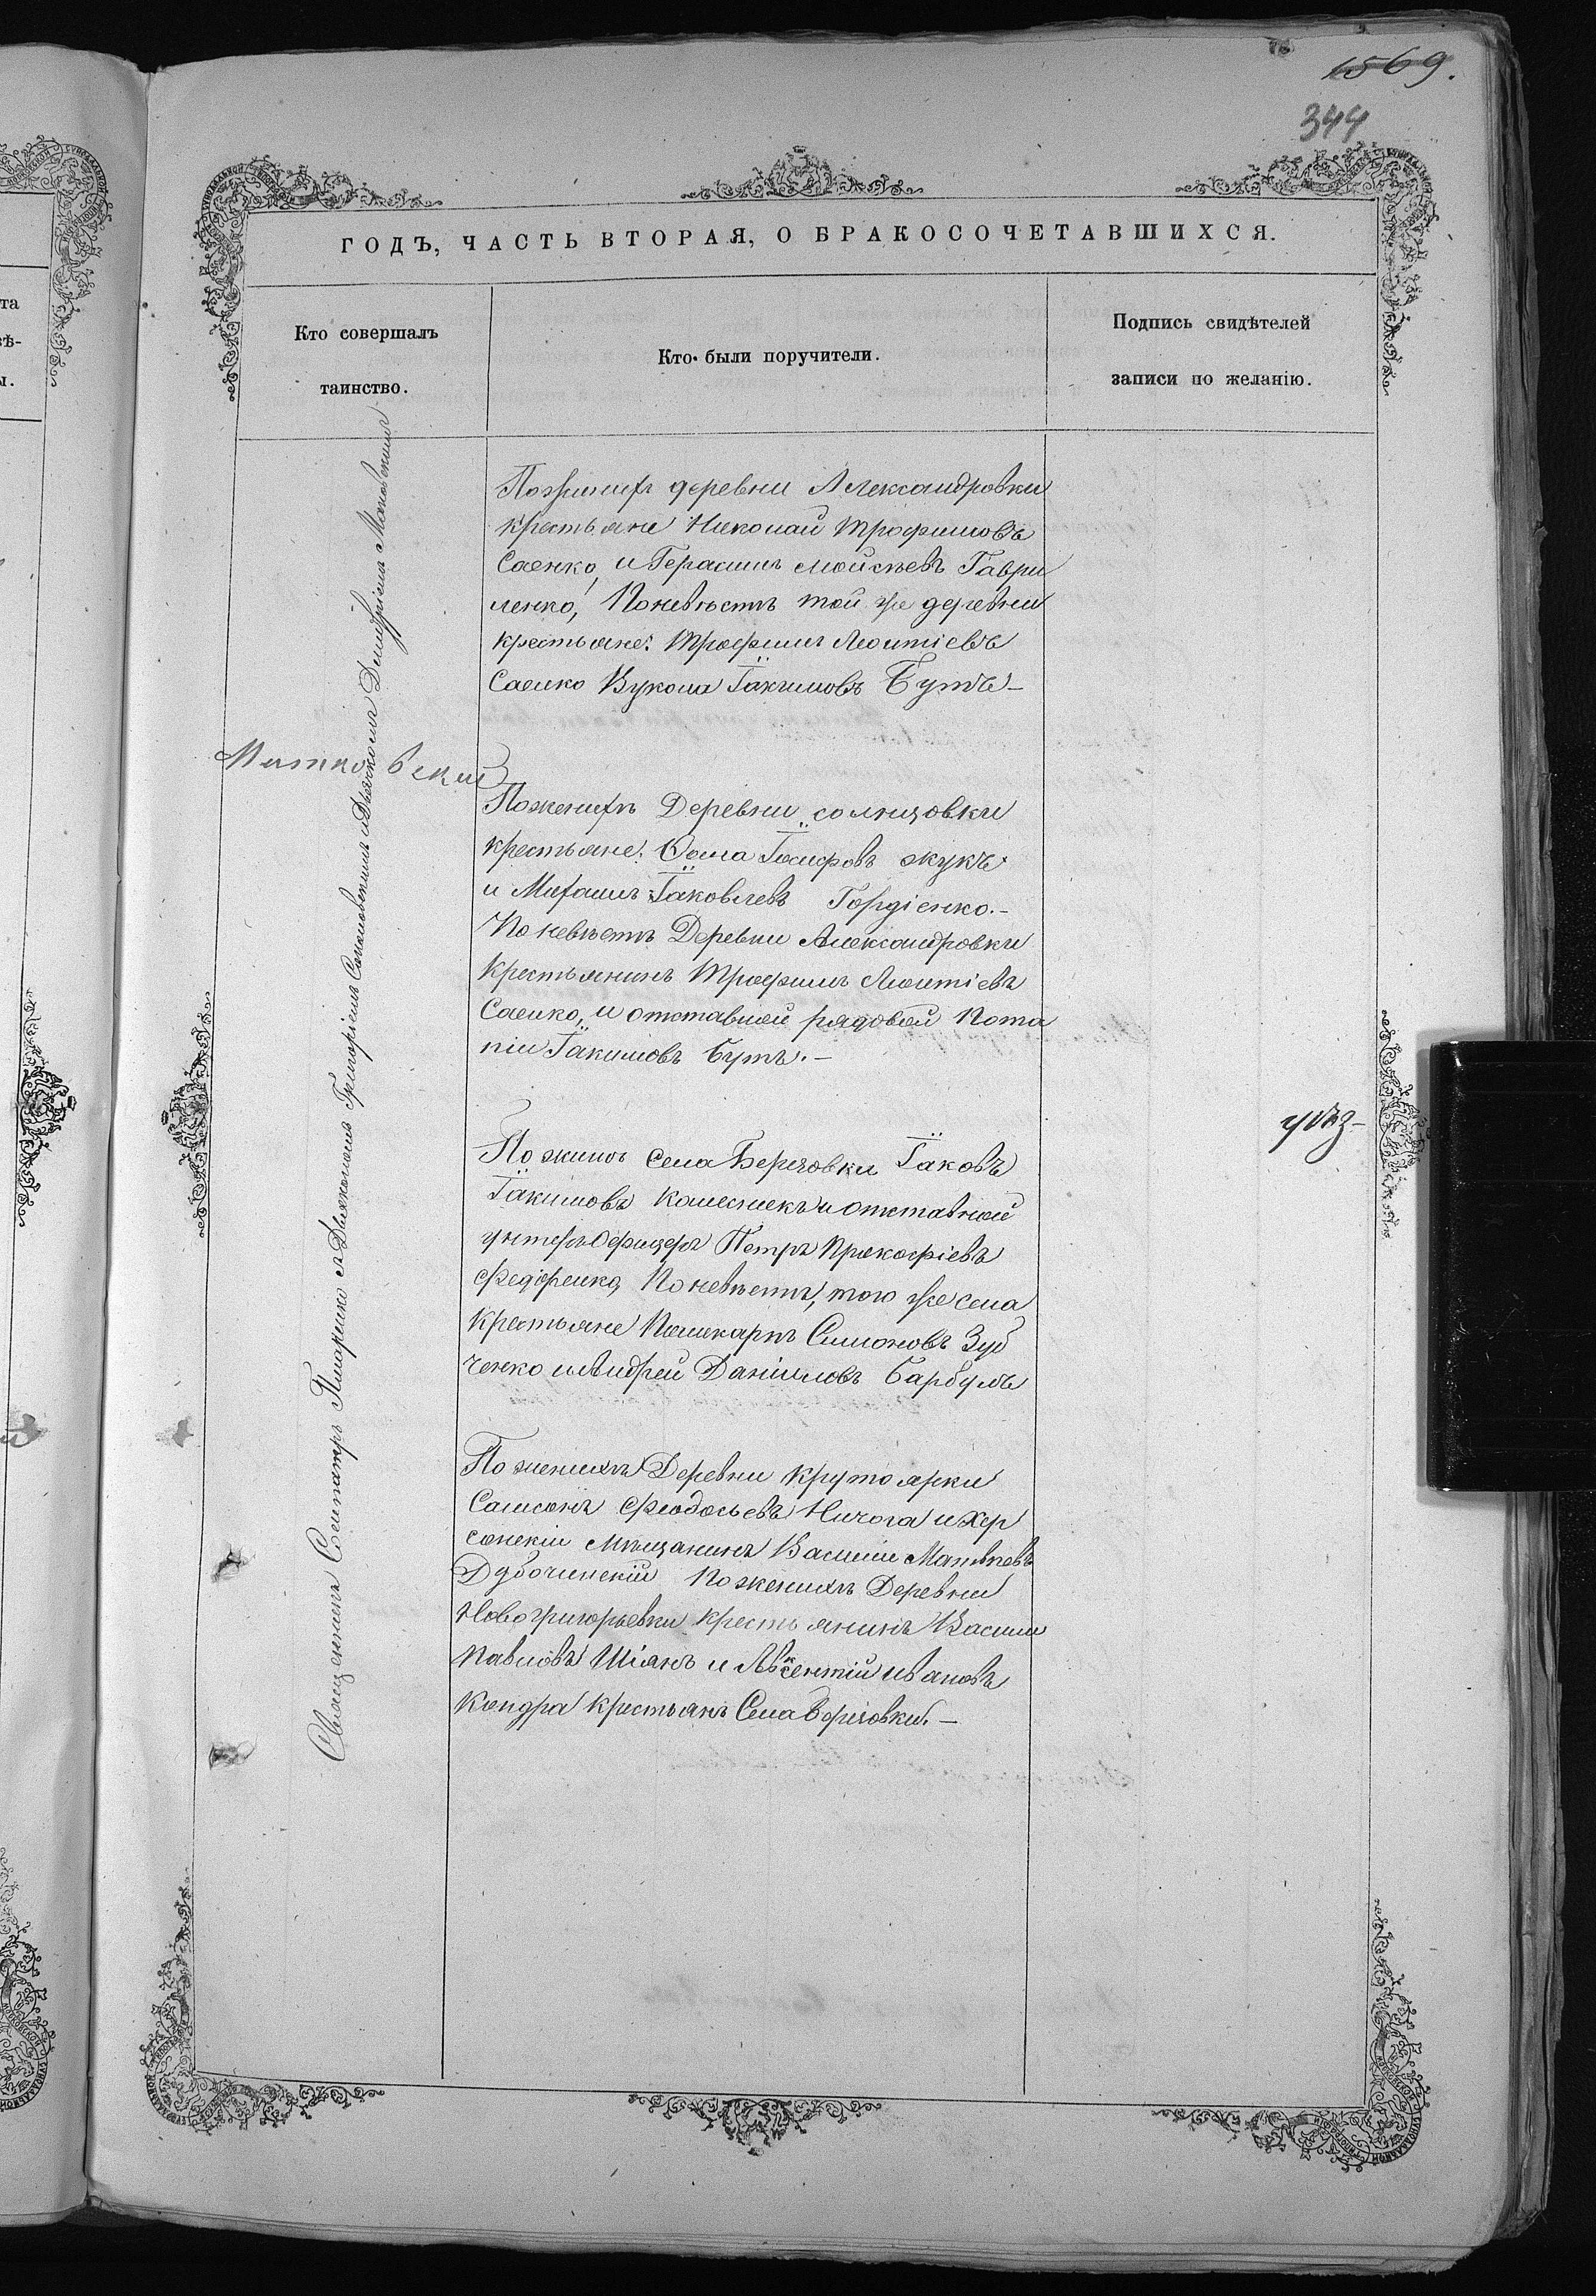 1569.
344
ГОДЪ, ЧАСТЬ ВТОРАЯ, О БРАКОСОЧЕТАВШИХСЯ.
Кто совершалъ
таинство.
Кто были поручители.
Подпись свидѣтелей
записи по желанію.
Священникъ Сосипатръ Писаренко съ Діакономъ Григоріемъ Соколовскимъ и Дьячкомъ Димитріемъ
Поженихѣ деревни Александровки
крестьяне Николай Трофимовъ
Саенко, и Герасимъ Мойсѣевъ Гаври
ленко, Поневѣстѣ той же деревни
крестьяне: Трофимъ Леонтіевъ
Саенко Вукола Іакимовъ Бутъ –
Поженихѣ Деревни Солнцовки
крестьяне: Ѳома Іосифовъ Жукъ
и Михаилъ Іаковлевъ Гордіенко. –
По невѣстѣ Деревни Александровки
Крестьянинъ Трофимъ Леонтіевъ
Саенко, и отставной рядовой Пота
пій Іакимовъ Бутъ. –
По жених Села Березовки Іаковъ
Іакимовъ Колесникъ и отставной
унтеръ Офицеръ Петръ Прокофіевъ
Федоренко, По невѣстѣ, того же села
Крестьяне Поликарпъ Симоновъ Зуб
ченко и Андрей Даніиловъ Барбулъ
По женихѣ Деревни Крутоярки
Самсонъ Феодосьевъ Ничога и Хер
сонскій мѣщанинъ Василій
Дубочинскій По женихѣ Деревни
Новогригорьевки крестьянинъ Василій
Павловъ Шіянъ и Авксентій Ивановъ
Кондра крестьянъ Села Березовки. –